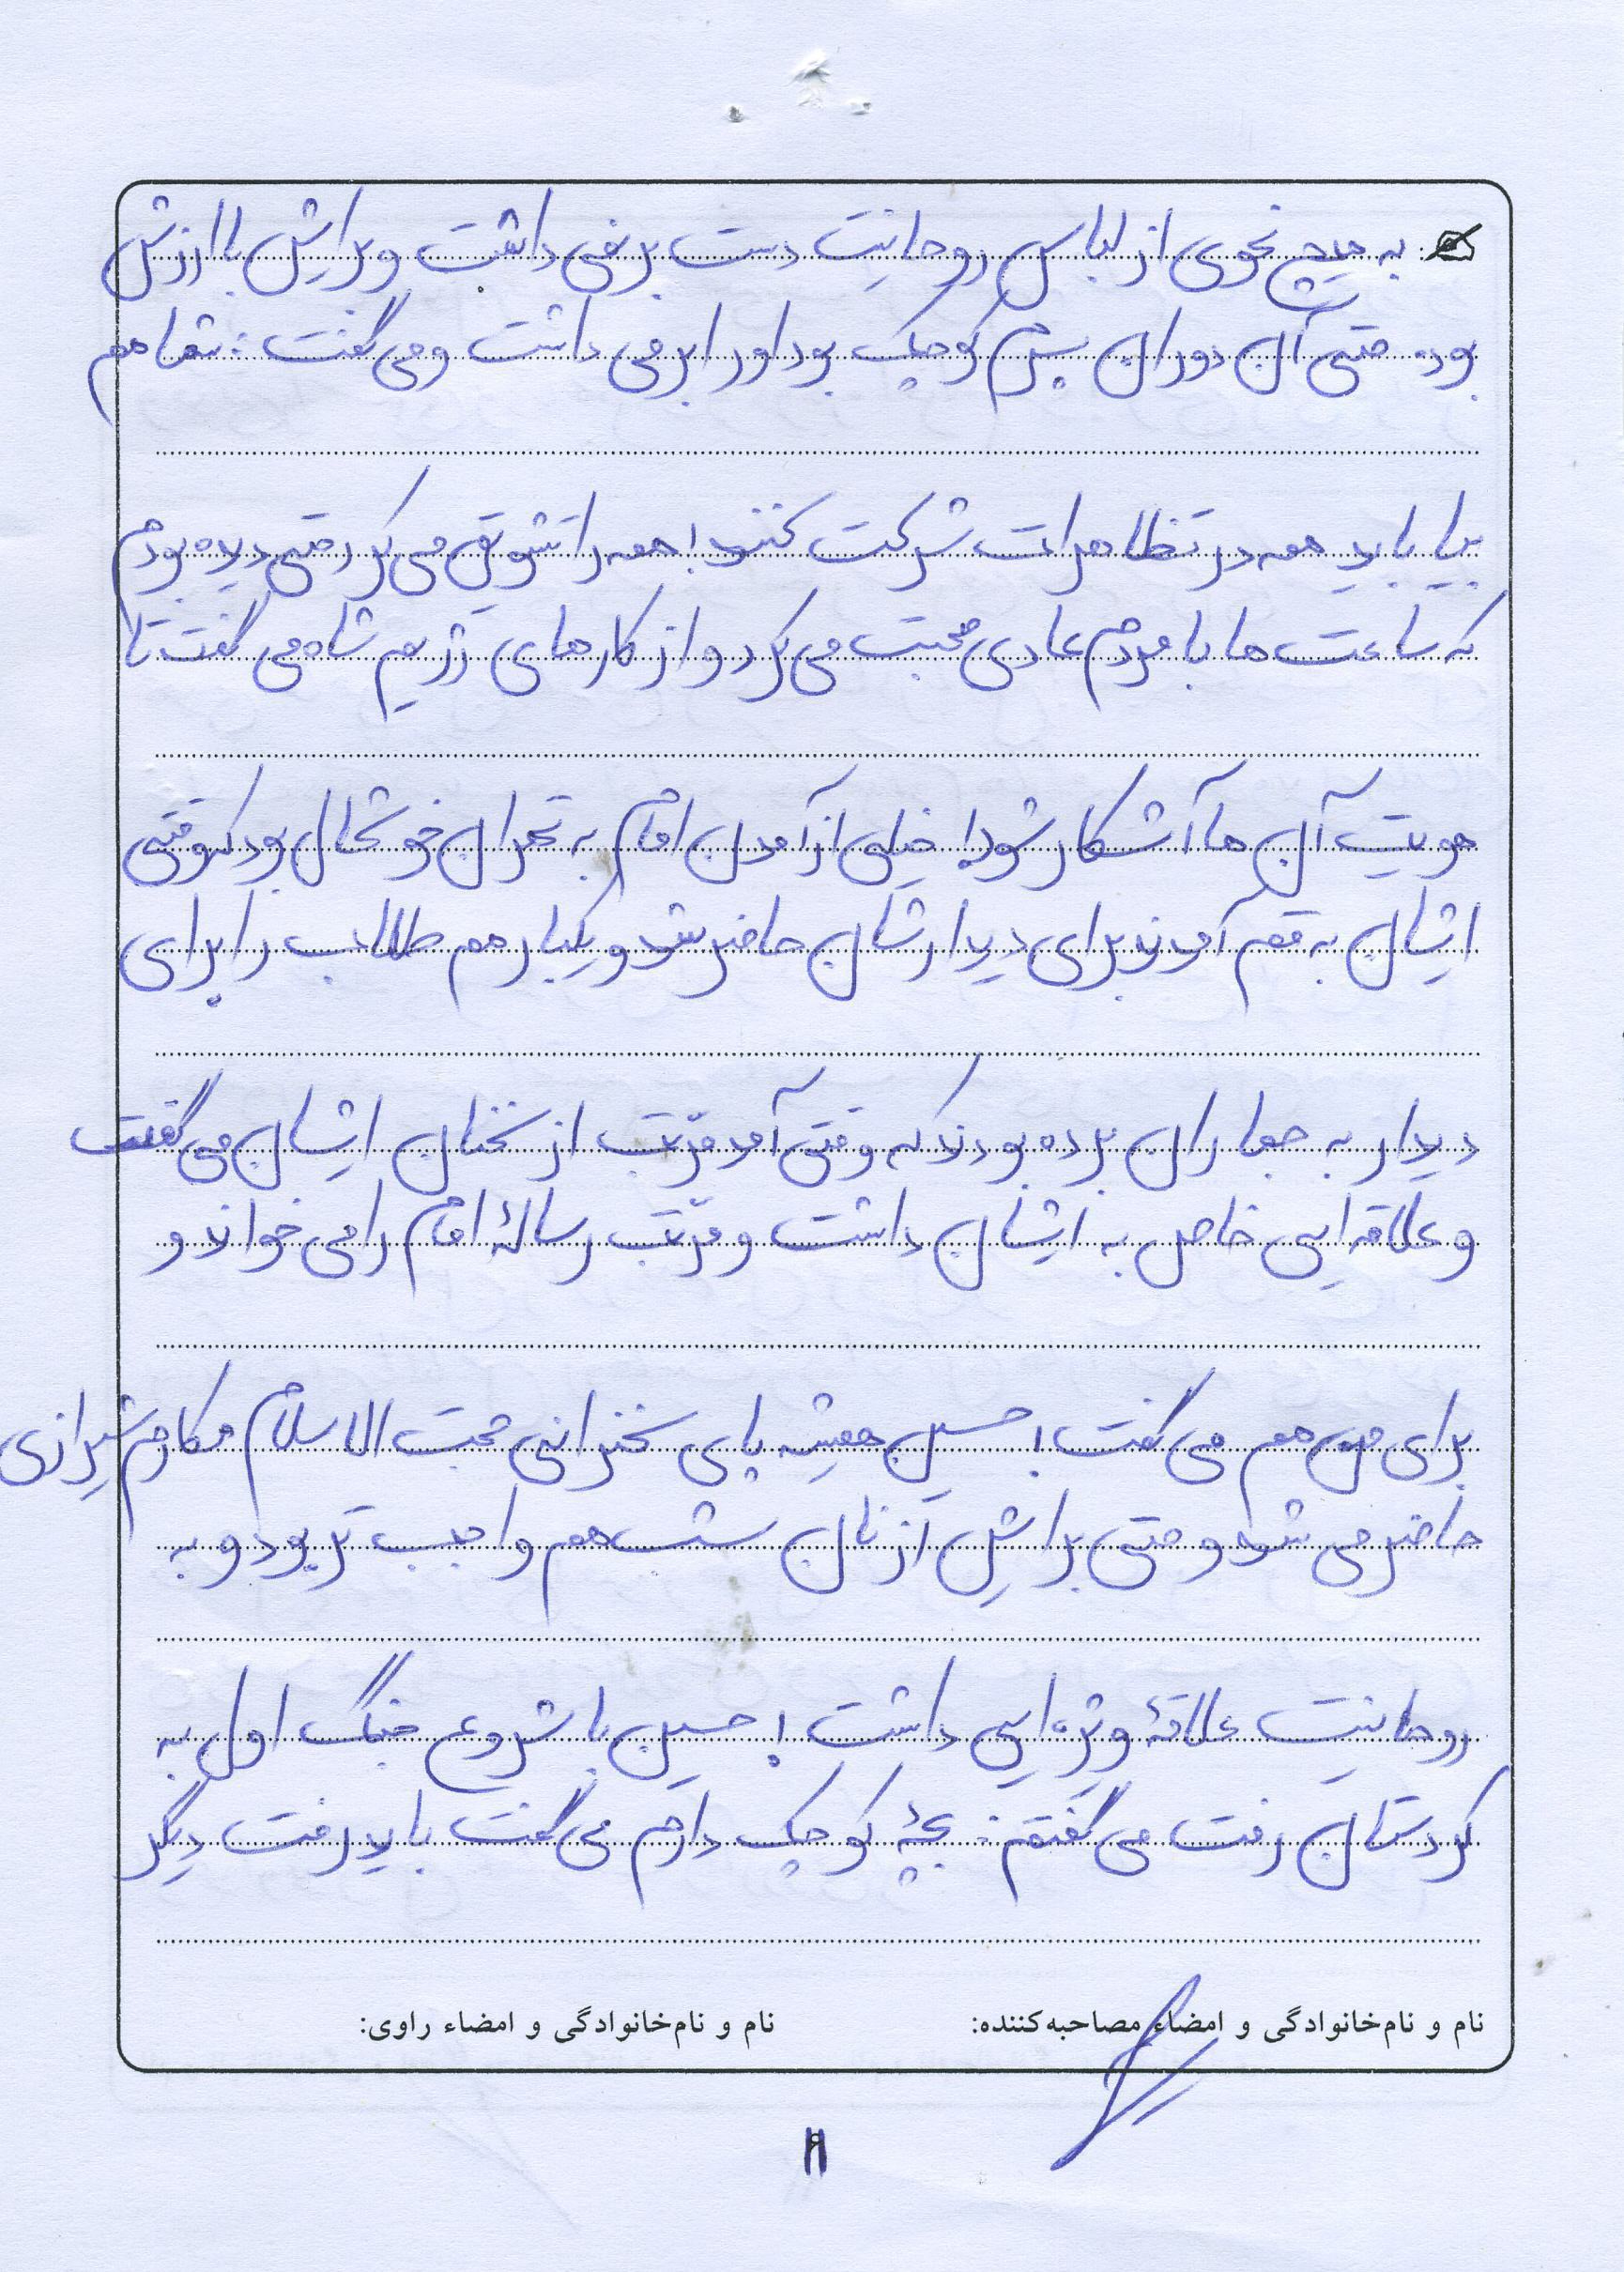 به هیچ نحوی از لباس روحانیت دست بر نمی داشت و برایش با ارزش
بود. حتی آن دوران پسرم کوچک بود او را بر می داشت و می گفت: شما هم
بیا باید همه در تظاهرات شرکت کنند! همه را تشویق می کرد حتی دیده بودم
که ساعت ها با مردم عادی صحبت می کرد و از کارهای رژیم شاه می گفت تا
هویت آن ها آشکار شود! خیلی از آمدن امام به تهران خوشحال بود که وقتی
ایشان به قم آمدند برای دیدارشان حاضر شد و یکبار هم طلاب را برای
دیدار به جماران برده بودند که وقتی آمد مرّتب از سخنان ایشان می گفت
و علاقه ایی خاص به ایشان داشت و مرّتب رسالهٔ امام را می خواند و
برای من هم می گفت! حسین همیشه پای سخنرانی حجت الاسلام مکارم شیرازی
حاضر می شد و حتی برایش از نان شب هم واجب تر بود و به
روحانیت علاقهٔ ویژه ایی داشت! حسین با شروع جنگ اول به
کردستان رفت می گفتم: بچهٔ کوچک دارم می گفت باید رفت دیگر
نام و نام‌خانوادگی و امضاء مصاحبه‌کننده: نام و نام‌خانوادگی و امضاء راوی: